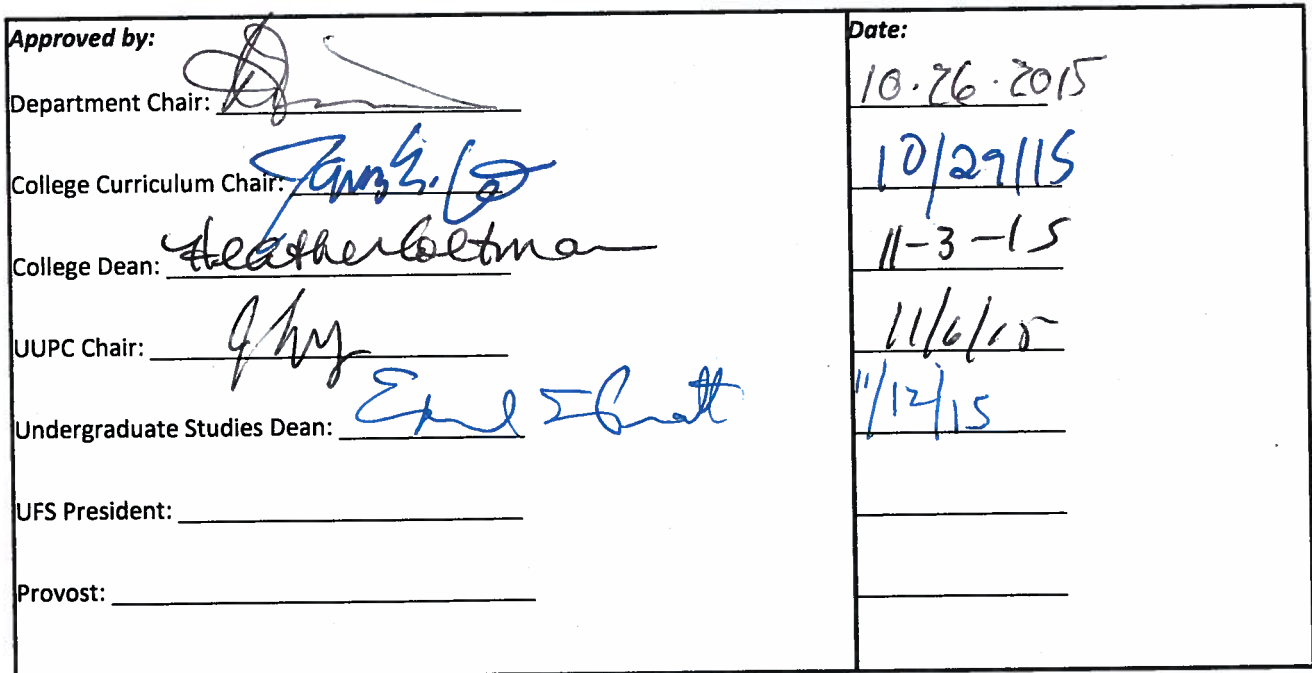 Approved by: Date:
Department Chair: 10.26.2015
College Curriculum Chair: 10/29/15
College Dean: Heather Coltman 11-3-15
UUPC Chair: 11/6/15
Undergraduate Studies Dean: 11/12/15
UFS President:
Provost: